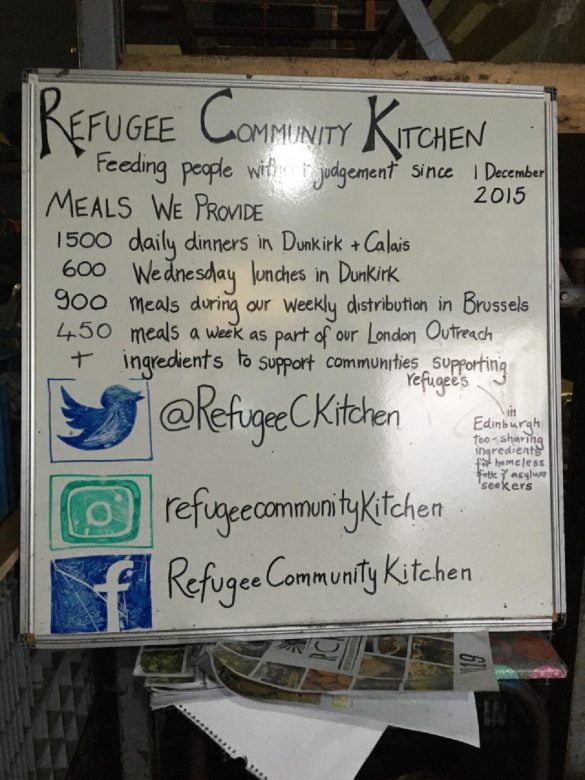 REFUGEE COMMUNITY KITCHEN
Feeding people without judgement since 1 December
2015
MEALS WE PROVIDE
1500 daily dinners in Dunkirk + Calais
600 Wednesday lunches in Dunkirk
900 meals during our weekly distribution in Brussels
450 meals a week as part of our London Outreach
+ ingredients to support communities supporting
refugees
in
Edinburgh
too - sharing
ingredients
for homeless
folk & asylum
seekers
@RefugeeCKitchen
refugeecommunityKitchen
f
RefugeeCommunityKitchen